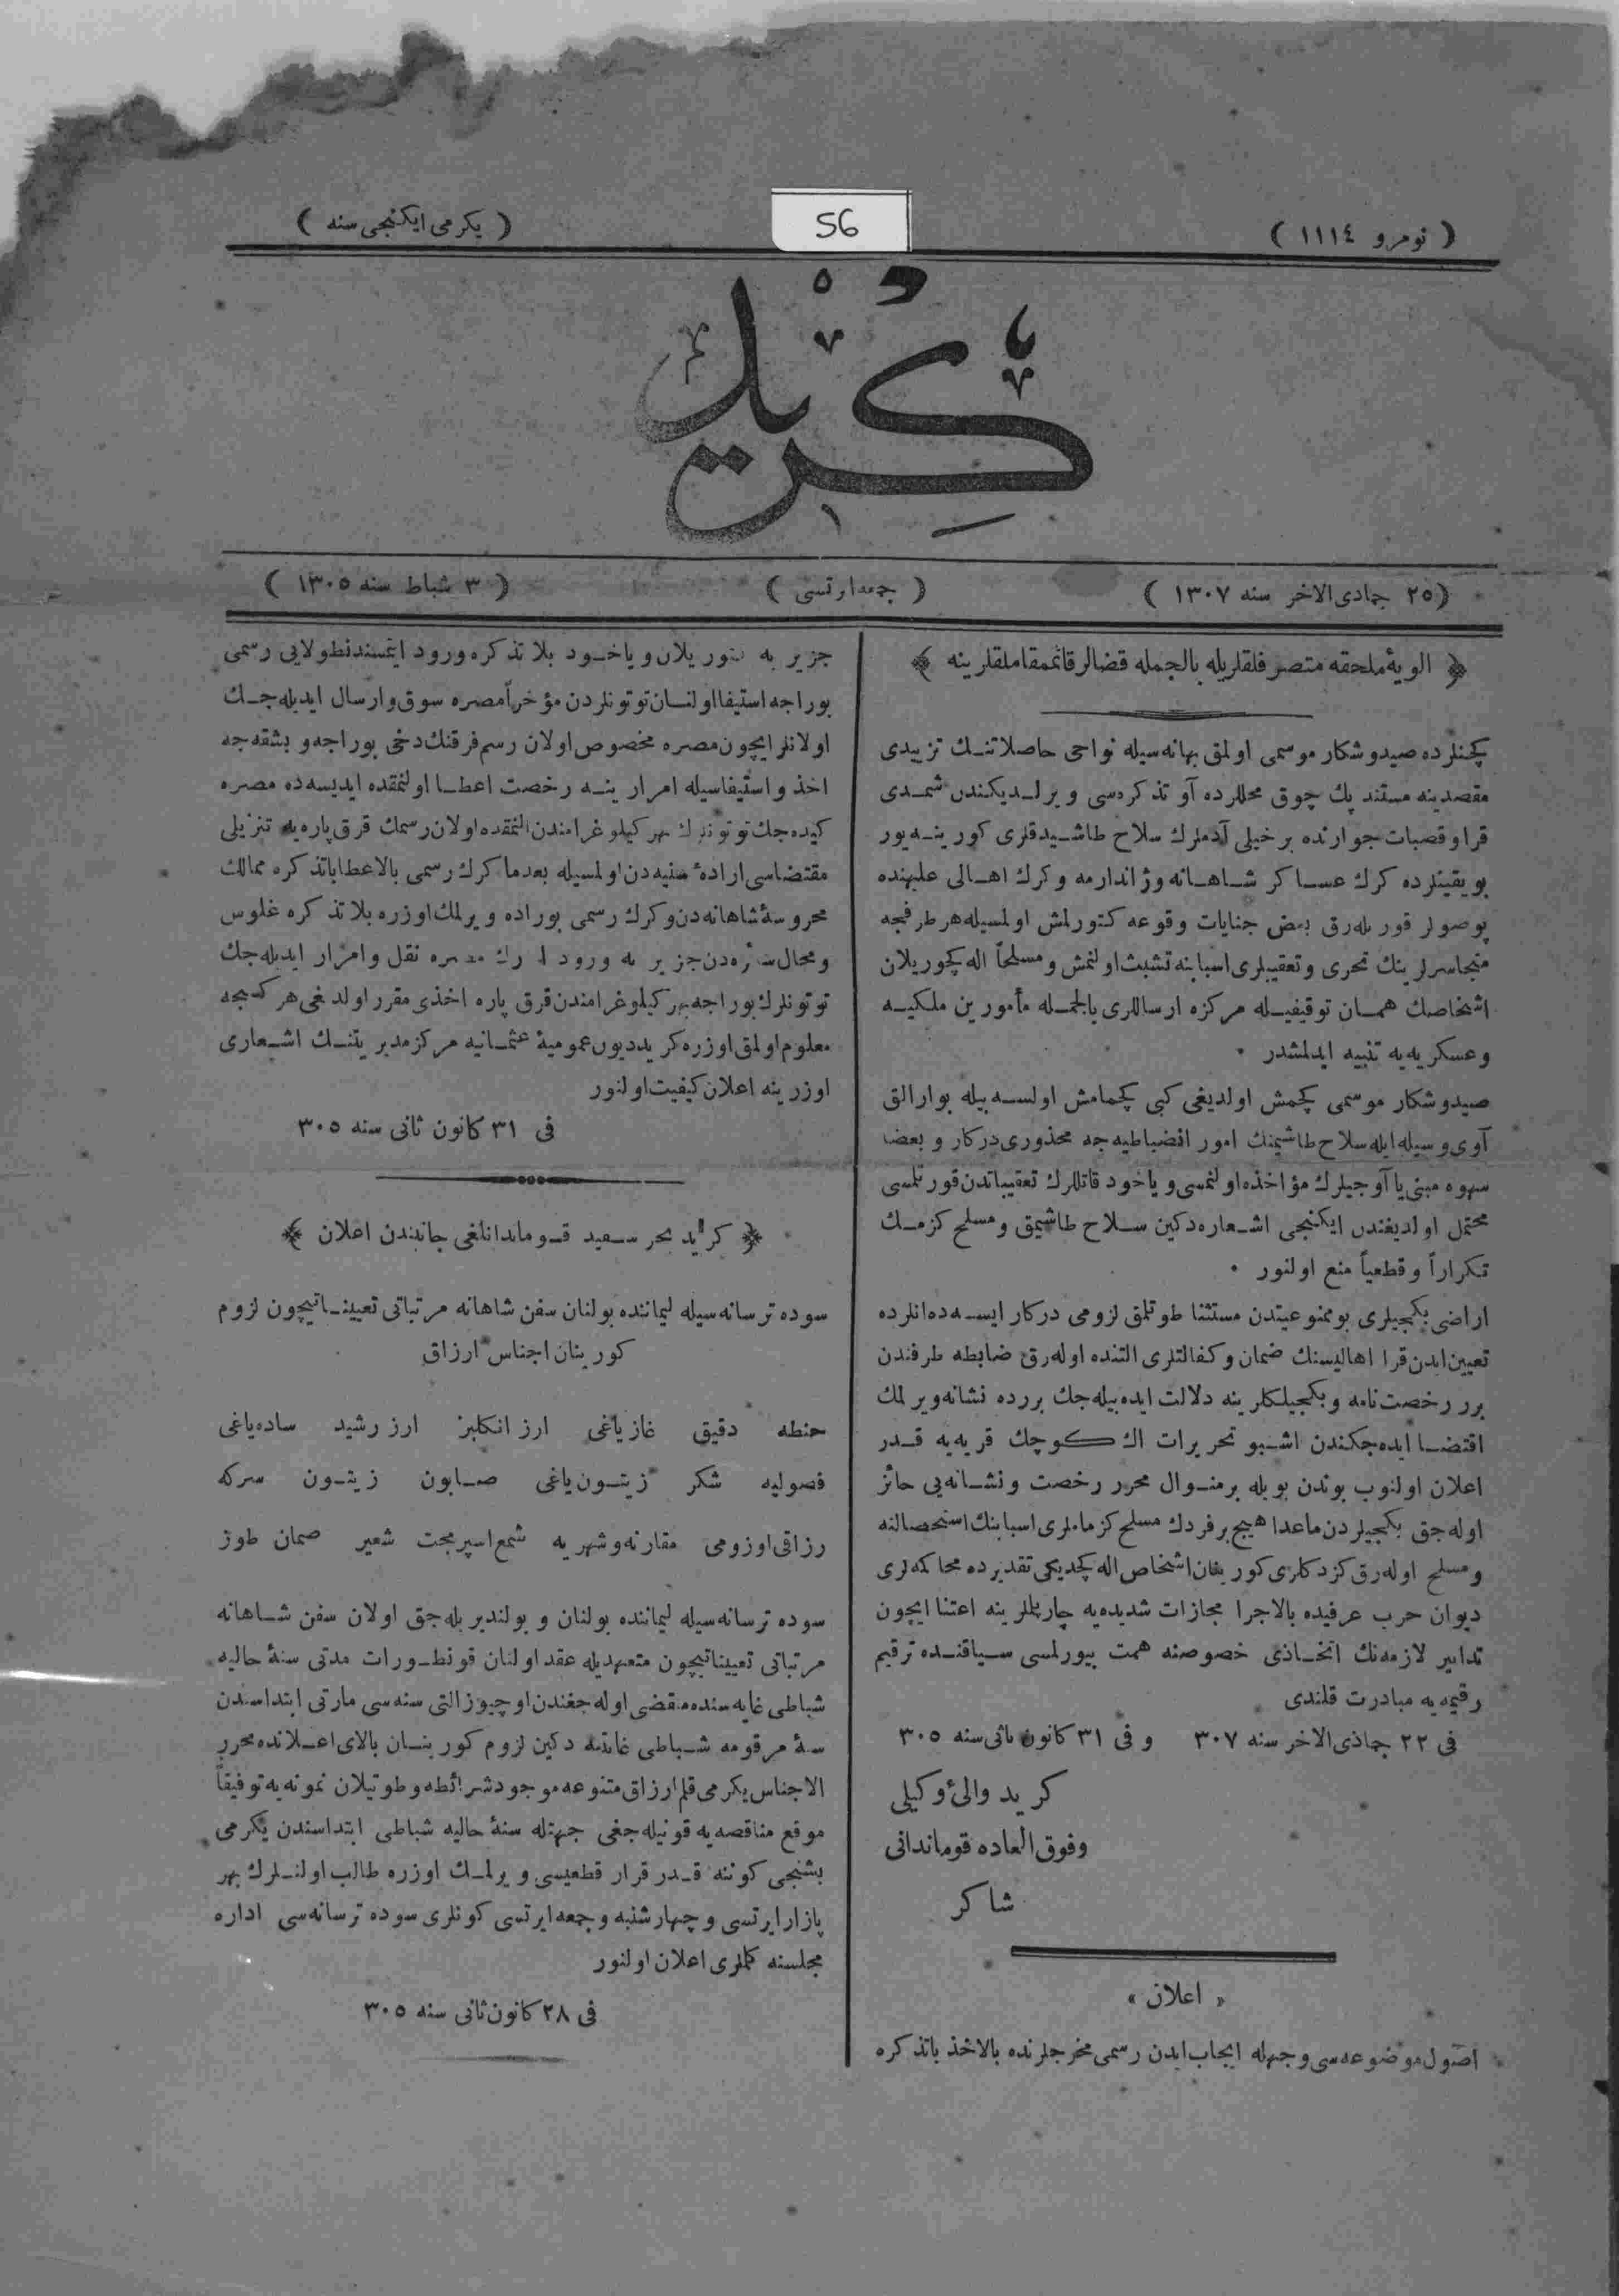 ( نومرو ١١١٤ )
56
( يكرمى ايكنجى سنه )
كريد
( ٢٥ جمادى الاخر سنه ١٣٠٧ )
( جمعه ارتسى )
( ٣ شباط سنه ١٣٠٥ )
﴿ الويهٔ ملحقه متصرفلقلريله بالجمله قضالر قائممقاملقلرينه ﴾
كچنلرده صيد و شكار موسمى اولمق بهانه سيله نواحى حاصلاتنك تزييدى
مقصدينه مستند پك چوق محللرده آو تذكره سى ويرلديكندن شمدى
قرا و قصبات جوارنده بر خيلى آدملرك سلاح طاشيدقلرى كورينه يور
بو يقينلرده كرك عساكر شاهانه و ژاندارمه و كرك اهالى عليهنده
پوصولر قوريله رق بعض جنايات وقوعه كتورلمش اولمسيله هر طرفجه
متجاسرلرينك تحرى و تعقيبلرى اسبابنه تشبث اولنمش و مسلحاً اله كچوريلان
اشخاصك همان توقيفيله مركزه ارساللرى بالجمله مأمورين ملكيه
و عسكريه يه تنبيه ايدلمشدر ٠
صيد و شكار موسمى كچمش اولديغى كبى كچمامش اولسه بيله بو ارالق
آوى وسيله ايله سلاح طاشيمنك امور انضباطيه جه محذورى دركار و بعضا
سهوه مبنى يا آوجيلرك مؤاخذه اولنمسى و ياخود قاتللرك تعقيباتدن قورتلسى
محتمل اولديغندن ايكنجى اشعاره دكين سلاح طاشيمق و مسلح كزمك
تكراراً و قطعياً منع اولنور ٠
اراضى بكجيلرى بو ممنوعيتدن مستثنا طوتلمق لزومى دركار ايسه ده انلرده
تعيين ايدن قرا اهاليسنك ضمان و كفالتلرى التنده اوله رق ضابطه طرفندن
برر رخصتنامه و بكجيلكلرينه دلالت ايده بيله جك بررده نشانه ويرلمك
اقتضا ايده جكندن اشبو تحريرات اك كوچك قريه يه قدر
اعلان اولنوب بوندن بويله بر منوال محرر رخصت و نشانه يى حائز
اوله جق بكجيلردن ماعدا هيچ بر فردك مسلح كزماملرى اسبابنك استحصالنه
و مسلح اوله رق كزدكلرى كورينان اشخاص اله كچديكى تقديرده محاكمه لرى
ديوان حرب عرفيده بالاجرا مجازات شديده يه چارپلملرينه اعتنا ايچون
تدابير لازمه نك اتخاذى خصوصنه همت بيورلمسى سياقنده ترقيم
رقيمه يه مبادرت قلندى
فى ٢٢ جماذى الاخر سنه ٣٠٧ و فى ٣١ كانون ثانى سنه ٣٠٥
كريد والئ وكيلى
و فوق العاده قوماندانى
شاكر
« اعلان »
اصول موضوعه سى وجهله ايجاب ايدن رسمى مخرجلرنده بالاخذ باتذكره
جزيريه كتوريلان و ياخود بلا تذكره ورود ايتمسندنطولايى رسمى
بوراجه استيفا اولنان توتونلردن مؤخراً مصره سوق و ارسال ايديله جك
اولانلر ايچون مصره مخصوص اولان رسم فرقنك دخى بوراجه و بشقه جه
اخذ و استيفاسيله امرارينه رخصت اعطا اولنمقده ايديسه ده مصره
كيده جك توتونلرك بهر كيلو غرامندن النمقده اولان رسمك قرق پاره يه تنزيلى
مقتضاسى ارادهٔ سنيه دن اولمسيله بعدما كرك رسمى بالاعطا باتذكره ممالك
محروسهٔ شاهانه دن و كرك رسمى بوراده ويرلمك اوزره بلا تذكره غلوس
و محال سائره دن جزيريه ورود ايدرك مصره نقل و امرار ايديله جك
توتونلرك بوراجه بهر كيلو غرامندن قرق پاره اخذى مقرر اولدغى هر كسجه
معلوم اولمق اوزره كريد ديون عموميهٔ عثمانيه مركز مديريتنك اشعارى
اوزرينه اعلان كيفيت اولنور
فى ٣١ كانون ثانى سنه ٣٠٥
﴿ كريد بحر سفيد قوماندانلغى جانبندن اعلان ﴾
سوده ترسانه سيله ليماننده بولنان سفن شاهانه مرتباتى تعييناتيچون لزوم
كورينان اجناس ارزاق
حنطه دقيق غازياغى ارز انكليز ارز رشيد ساده ياغى
فصوليه شكر زيتون ياغى صابون زيتون سركه
رزاقى اوزومى مقارنه و شهريه شمع اسپرمجت شعير صمان طوز
سوده ترسانه سيله ليماننده بولنان و بولنديريله جق اولان سفن شاهانه
مرتباتى تعييناتيچون متعهديله عقد اولنان قونطورات مدتى سنهٔ حاليه
شباطى غايه سنده منقضى اوله جغندن اوچيوز التى سنه سى مارتى ابتداسندن
سنهٔ مرقومه شباطى غايتنه دكين لزوم كورينان بالاى اعلانده محرر
الاجناس يكرمى قلم ارزاق متنوعه موجود شرائطه و طوتيلان نمونه يه توفيقاً
موقع مناقصه يه قونيله جغى جهتله سنهٔ حاليه شباطى ابتداسندن يكرمى
بشنجى كوننه قدر قرار قطعيسى ويرلمك اوزره طالب اولنلرك بهر
پازار ايرتسى و چهارشنبه و جمعه ايرتسى كونلرى سوده ترسانه سى اداره
مجلسنه كلملرى اعلان اولنور
فى ٢٨ كانون ثانى سنه ٣٠٥